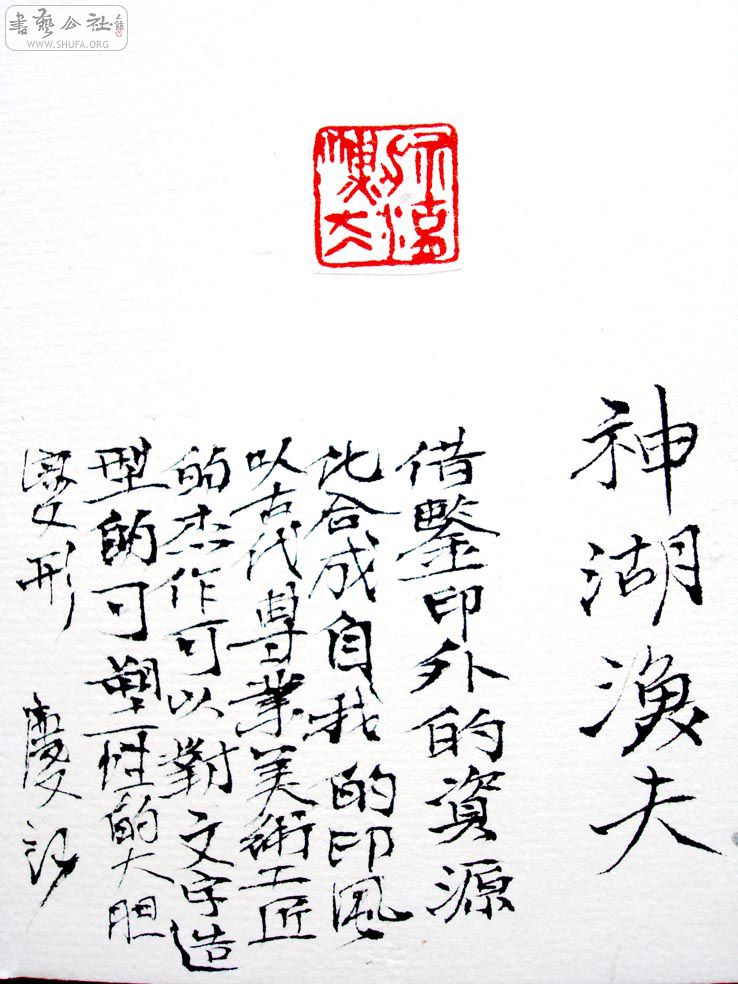 書藝公社
WWW.SHUFA.ORG
神湖漁夫
借鑒印外的資源
化合成自我的印風
以古代專業美術工匠
的杰作可以對文字造
型的可塑性的大胆
變形 慶